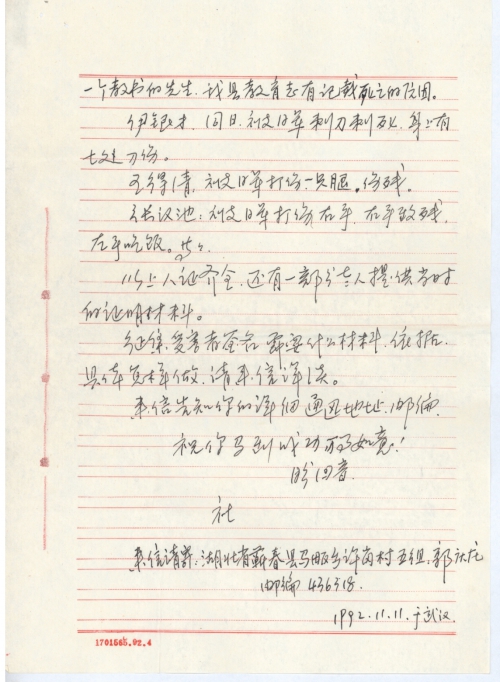 一个教书的先生，我县教育志有记载死亡的原因。
伊银才，同日，被日军刺刀刺死，身上有
七处刀伤。
王绪清，被日军打伤一只腿，伤残。
张汉池：被日军打伤右手，右手致残，
左手吃饭。等。
以上人证齐全，还有一部分老人提供当时
的证明材料。
征集受害者签名 需要什么材料，依据，
具体怎样做，请来信详谈。
来信告知你的详细通迅地址，邮编。
祝你马到成功万事如意！
盼回音
社
来信请寄：湖北省蕲春县马畈乡许岗村五组：郭庆
邮编 436318.
1992.11.11.于武汉.
1701565.92.4